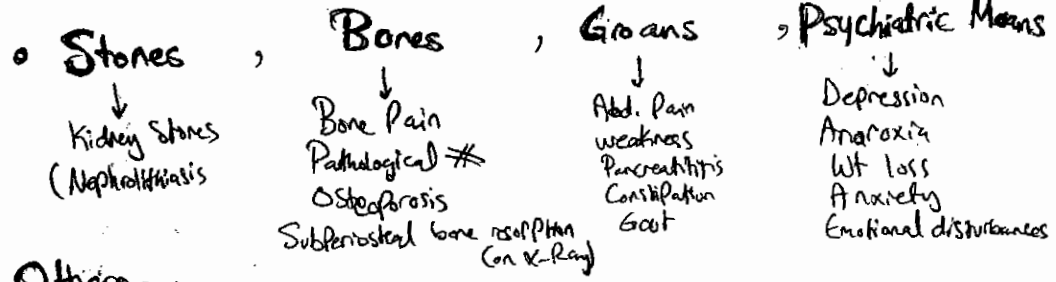 • Stones , Bones , Groans , Psychiatric Moans
↓ ↓ ↓ ↓
Kidney Stones
(Nephrolithiasis
Bone Pain
Pathological #
Osteoporosis
Subperiosteal bone resorption
(on X-Ray)
Abd. Pain
weakness
Pancreatitis
Constipation
Gout
Depression
Anoroxia
Wt loss
Anxiety
Emotional disturbances